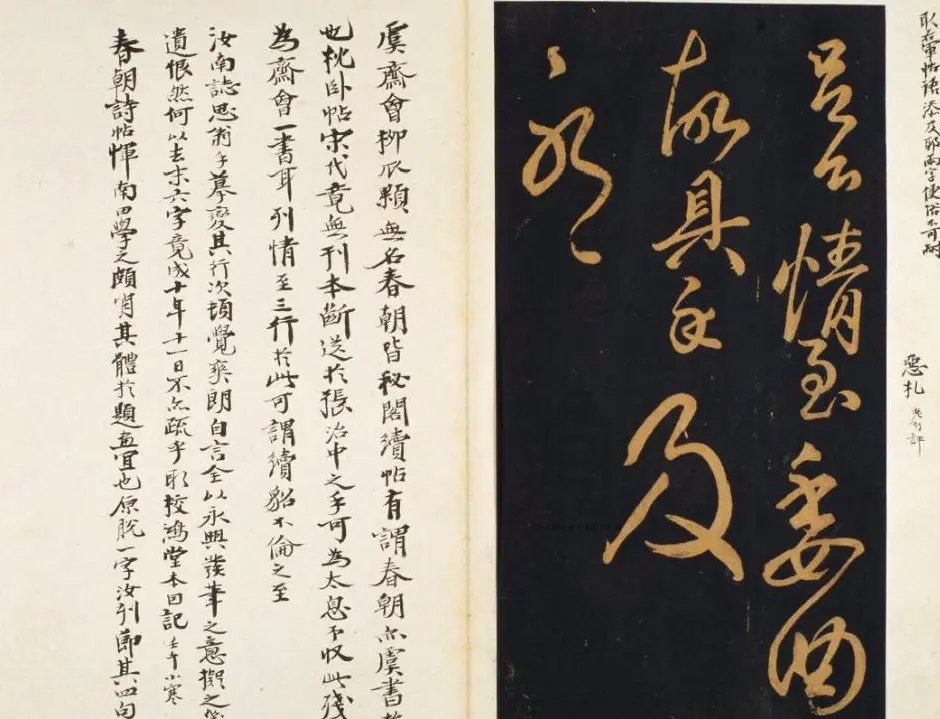 取右軍帖語添及耶兩字便俗不可耐
惡札
情至委曲
故具示及
耶
虞齋會柳顆無名春朝皆秘閣續帖有謂春朝亦虞書
也枕卧帖宋代竟無刊本斷送於張治中之手可為太息予収此殘
為齋會一書耳列情至三行於此可謂續貂不倫之至
汝南誌思翁手摹變其行次頃覺爽朗自言全以永興發筆之意擬之
遺恨然何以去末六字竟成十年十一日不亦疏乎取校鴻堂本因記 壬午小寒
春朝詩帖惲南田學之頗肖其體於題畫宜也原脫一字汝刊節其四句